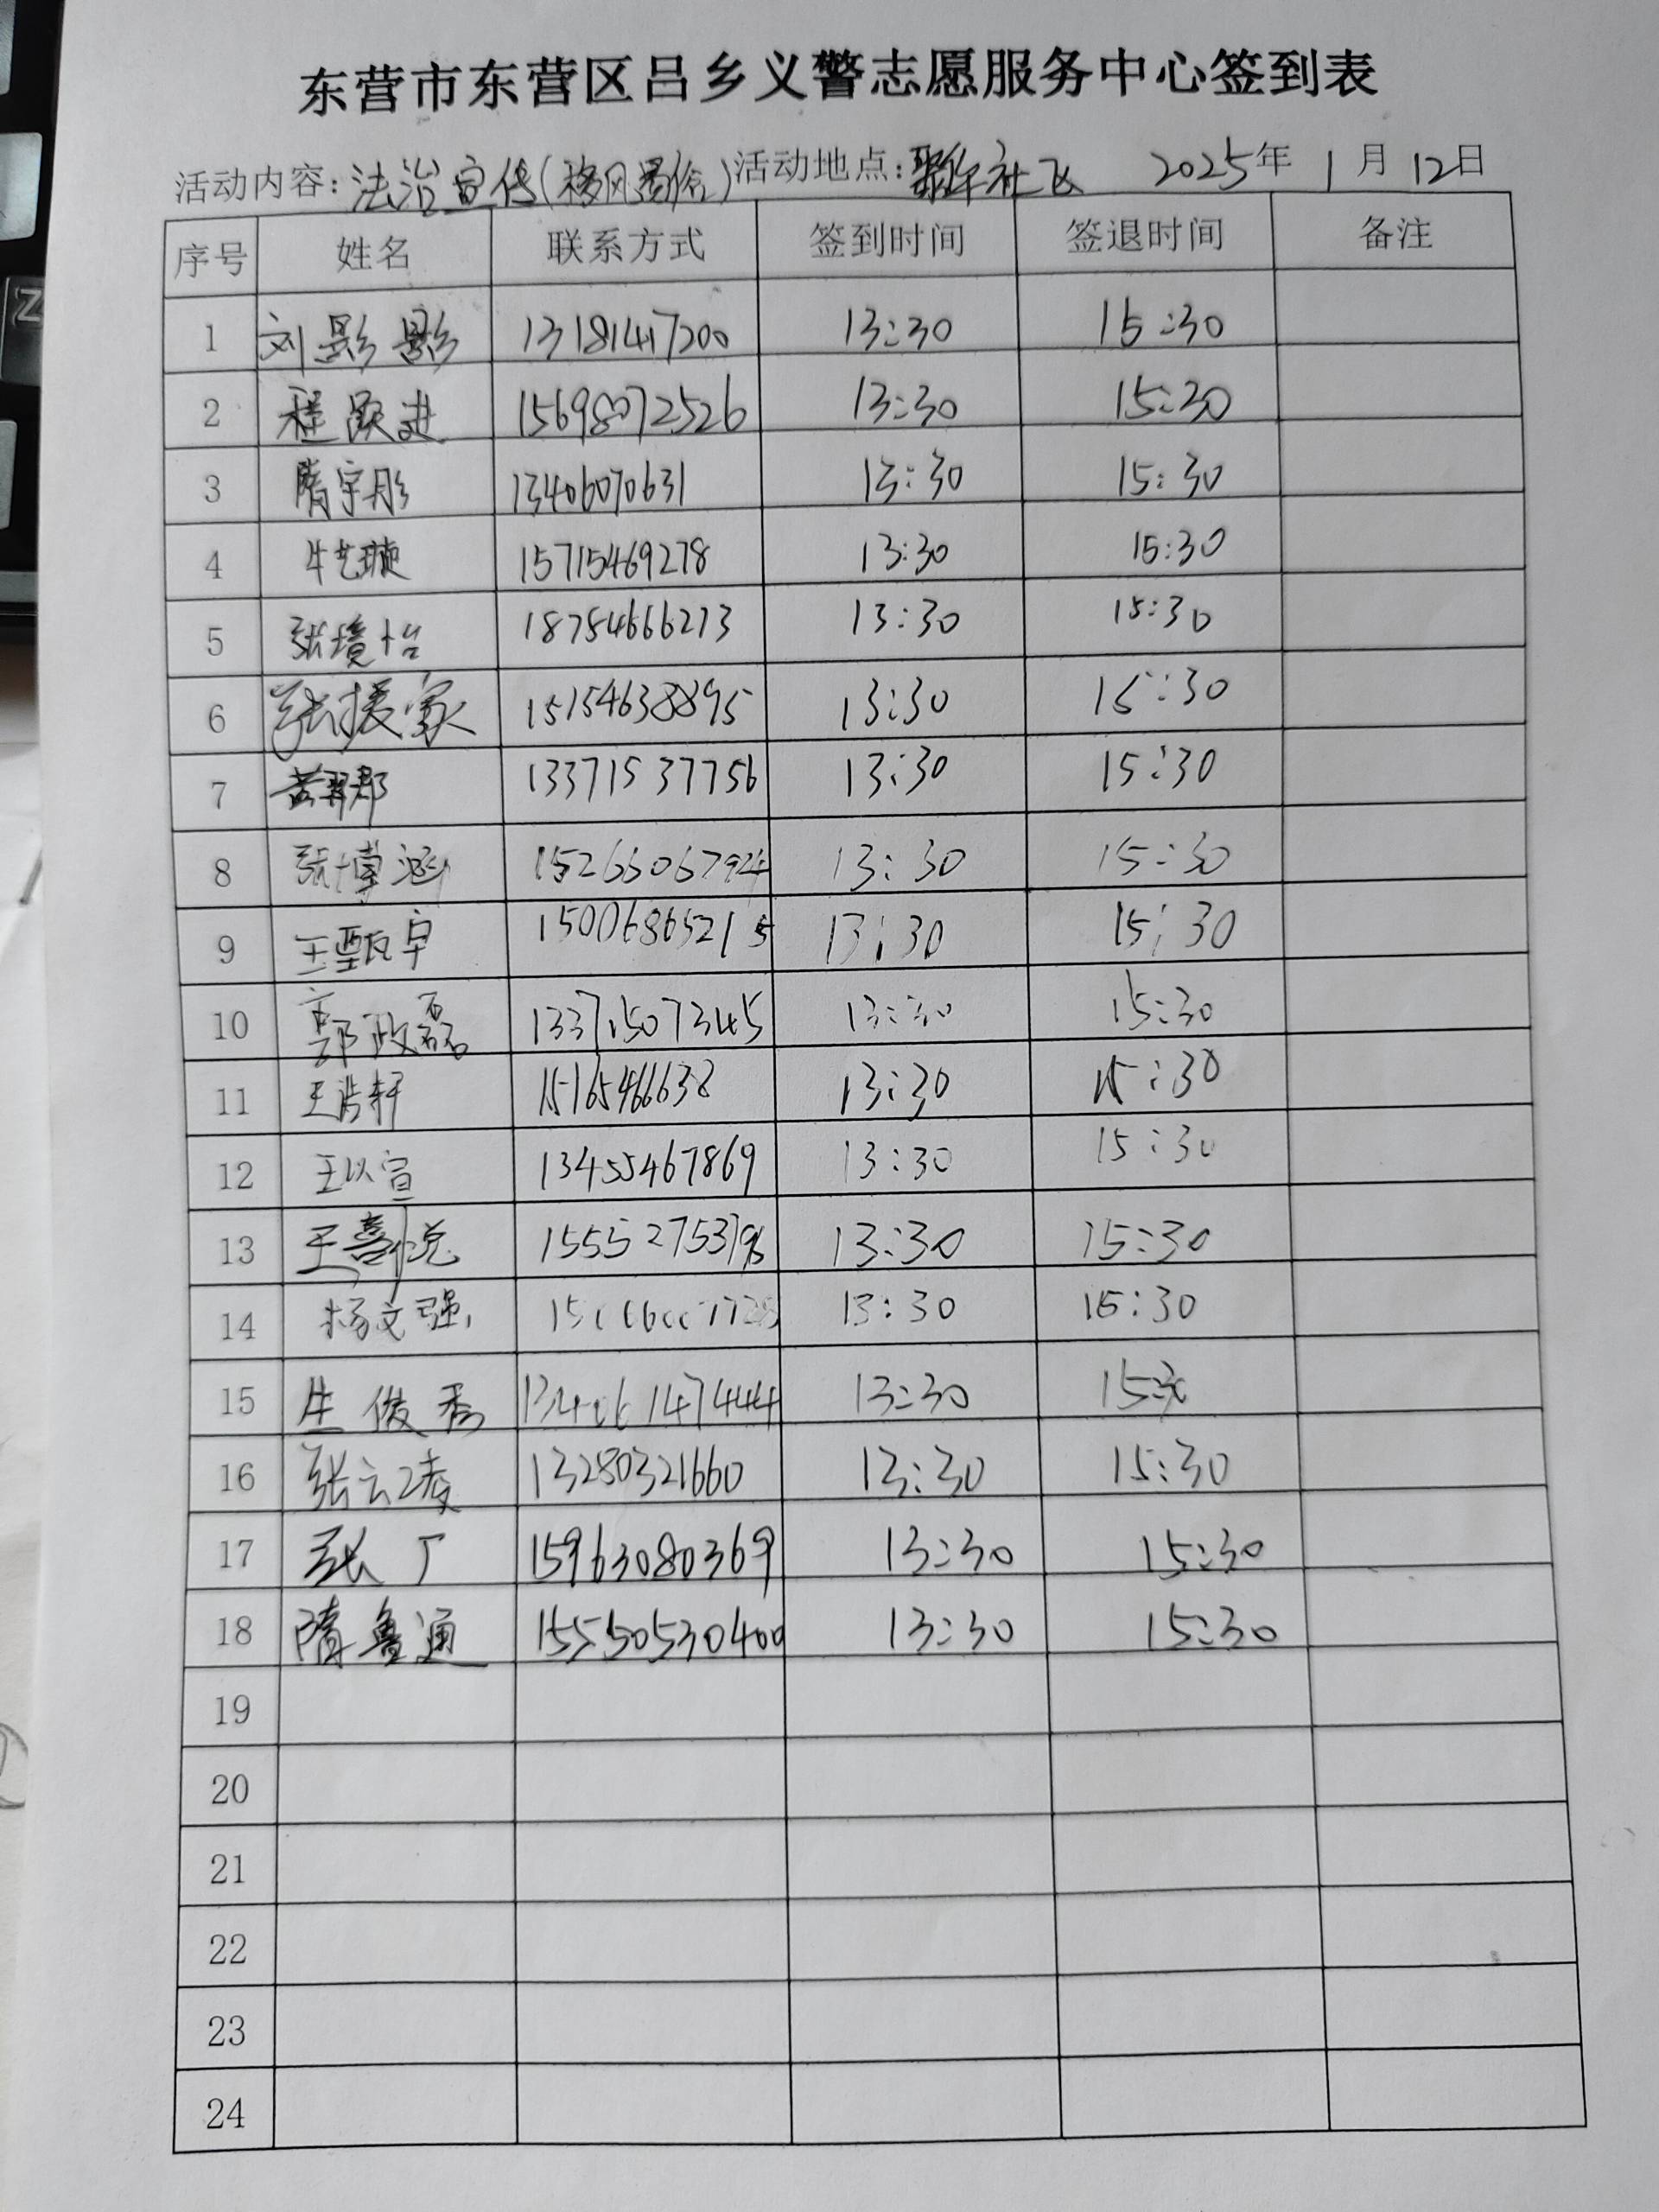 东营市东营区吕乡义警志愿服务中心签到表
活动内容：法治宣传（移风易俗）活动地点：聚华社区 2025年 1月 12日
序号 姓名 联系方式 签到时间 签退时间 备注
1 刘影影 13181417200 13:30 15:30
2 程跃进 15698072526 13:30 15:30
3 隋宇彤 13406070631 13:30 15:30
4 牛艺璇 15715469278 13:30 15:30
5 张境怡 18754666213 13:30 15:30
6 张援家 15154638895 13:30 15:30
7 13371537756 13:30 15:30
8 张博涵 13:30 15:30
9 王甄宇 15006865215 13:30 15:30
10 郭政磊 13371507345 13:30 15:30
11 王浩轩 15165466638 13:30 15:30
12 王以宣 13455467869 13:30 15:30
13 王喜悦 13:30 15:30
14 杨文强 13:30 15:30
15 生俊秀 13:30 15:30
16 张云凌 13280321660 13:30 15:30
17 张广 15963080369 13:30 15:30
18 隋鲁通 15550530400 13:30 15:30
19
20
21
22
23
24